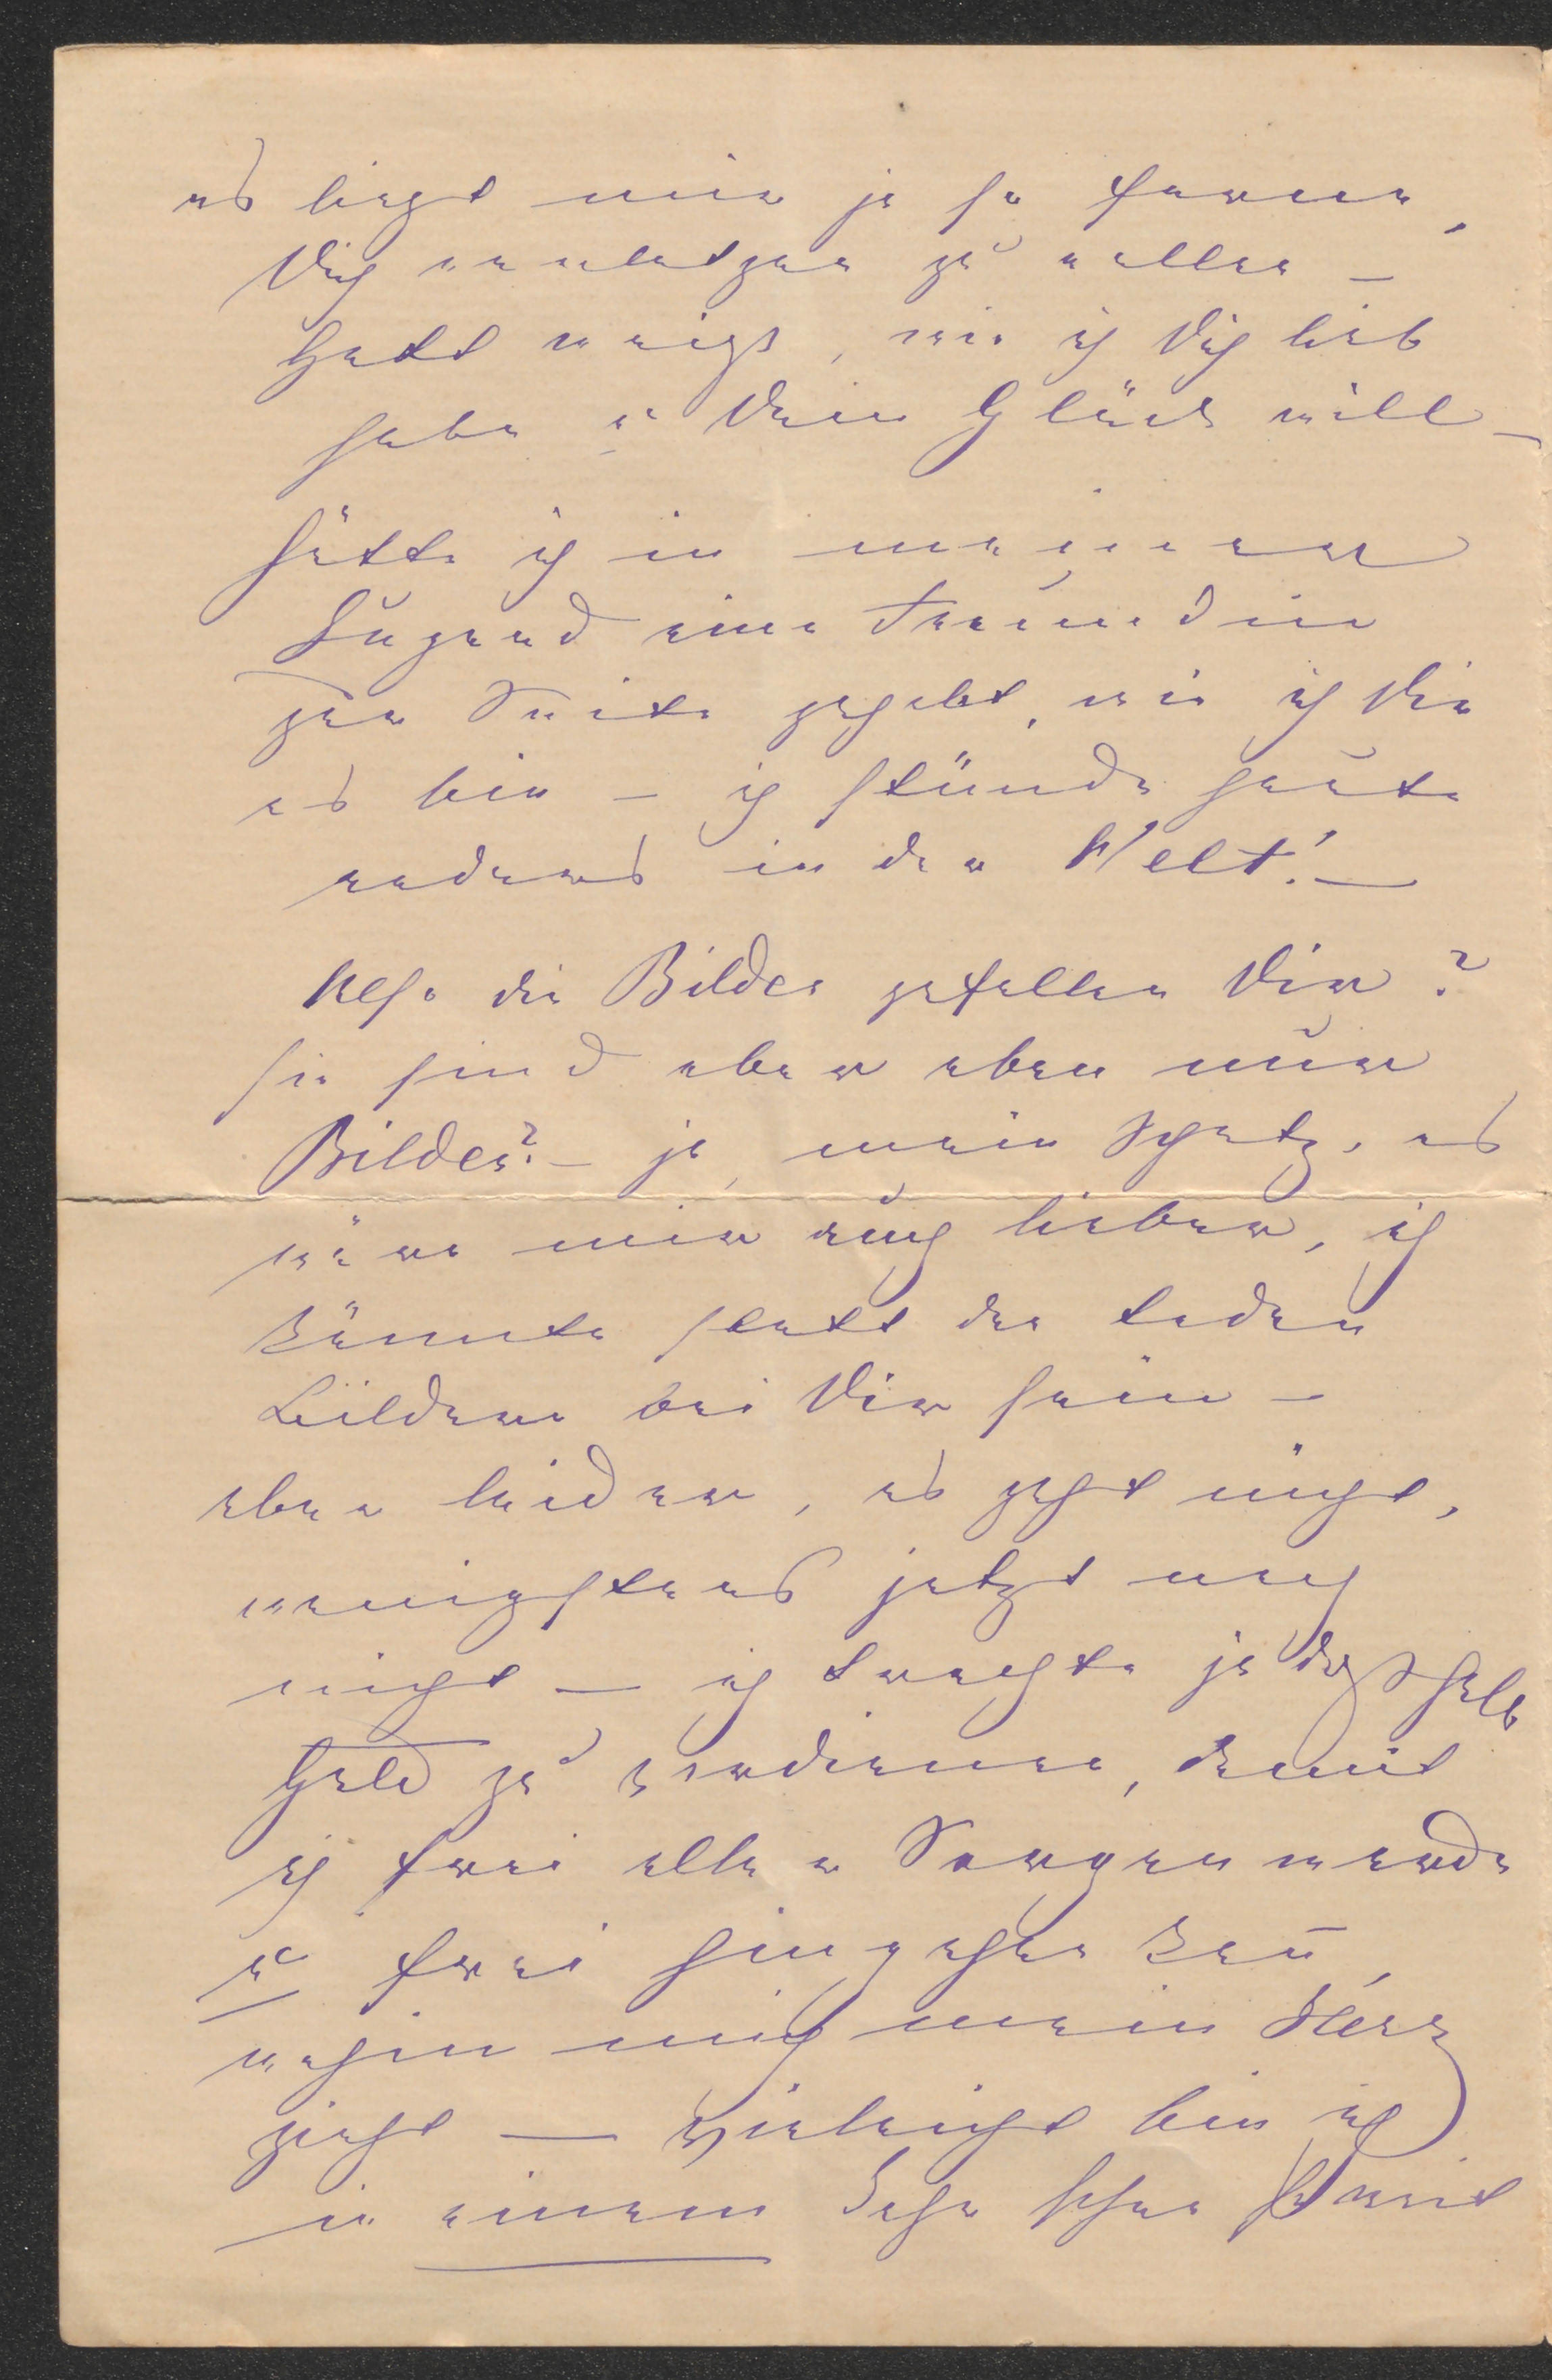 es liegt mir ja so ferne,
Dich verletzen zu wollen –
Gott weiß, wie ich Dich lieb
habe u Dein Glück will –
hätte ich in meiner
Jugend eine Freundin
zur Seite gehabt, wie ich Dir
es bin – ich stünde heute
anders in der Welt! –
Also die Bilder gefallen Dir?
sie sind aber eben nur
Bilder? – ja, mein Schatz, es
wäre mir auch lieber, ich
könnte statt der toden
Bildern bei Dir sein –
aber leider, es geht nicht,
wenigstens jetzt noch
nicht – ich trachte ja deshalb
Geld zu verdienen, damit
ich frei aller Sorgen werde
u frei hingehen kan̄,
wohin mich mein Herz
zieht – vieleicht bin ich
in einem Jahr schon so weit